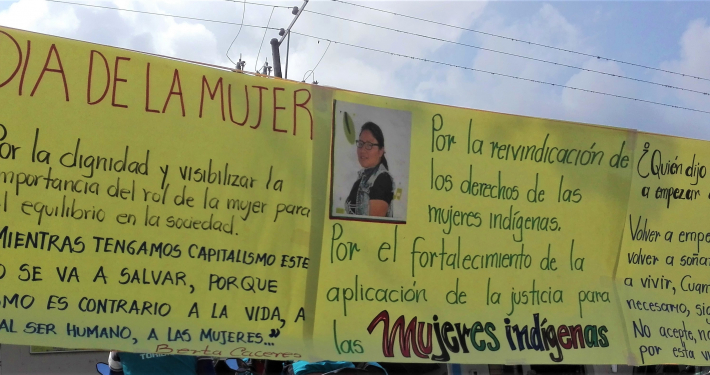 DIA DE LA MUJER
Por la dignidad y visibilizar la
importancia del rol de la mujer para
el equilibrio en la sociedad.
MIENTRAS TENGAMOS CAPITALISMO ESTE
O SE VA A SALVAR, PORQUE
SMO ES CONTRARIO A LA VIDA, A
AL SER HUMANO, A LAS MUJERES..."
Berta Caceres
Por la reivindicación de
los derechos de las
mujeres indígenas.
Por el fortalecimiento de la
aplicación de la justicia para
las Mujeres indígenas
¿Quién dijo
a empezar
Volver a empe
volver a soña
a vivir, Cuan
necesario, sig
No acepte, no
por esta v